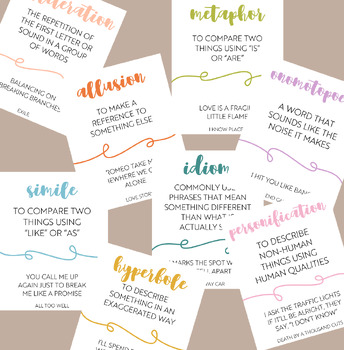 THE REPETITION OF
THE FIRST LETTER OR
SOUND IN A GROUP
OF WORDS
BALANCING ON
BREAKING BRANCHES
EXILE
allusion
TO MAKE A
REFERENCE TO
SOMETHING ELSE
ROMEO TAKE M
WHERE WE C
ALONE
LOVE STORY
metaphor
TO COMPARE TWO
THINGS USING "IS"
OR "ARE"
LOVE IS A FRAGIL
LITTLE FLAME
KNOW PLACE
onomatopoe
A WORD THAT
SOUNDS LIKE THE
NOISE IT MAKES
I HIT YOU LIKE BAN
END G
simile
TO COMPARE TWO
THINGS USING
"LIKE" OR "AS"
YOU CALL ME UP
AGAIN JUST TO BREAK
ME LIKE A PROMISE
ALL TOO WELL
idiom
COMMONLY U
PHRASES THAT MEAN
SOMETHING DIFFERENT
THAN WHAT
ACTUALLY S
MARKS THE SPOT W
LL APART
WAY CAR
personification
TO DESCRIBE
NON-HUMAN
THINGS USING
HUMAN QUALITIES
I ASK THE TRAFFIC LIGHTS
IF IT'LL BE ALRIGHT, THEY
SAY, "I DON'T KNOW"
DEATH BY A THOUSAND CUTS
hyperbole
TO DESCRIBE
SOMETHING IN AN
EXAGGERATED WAY
I'LL SPEND